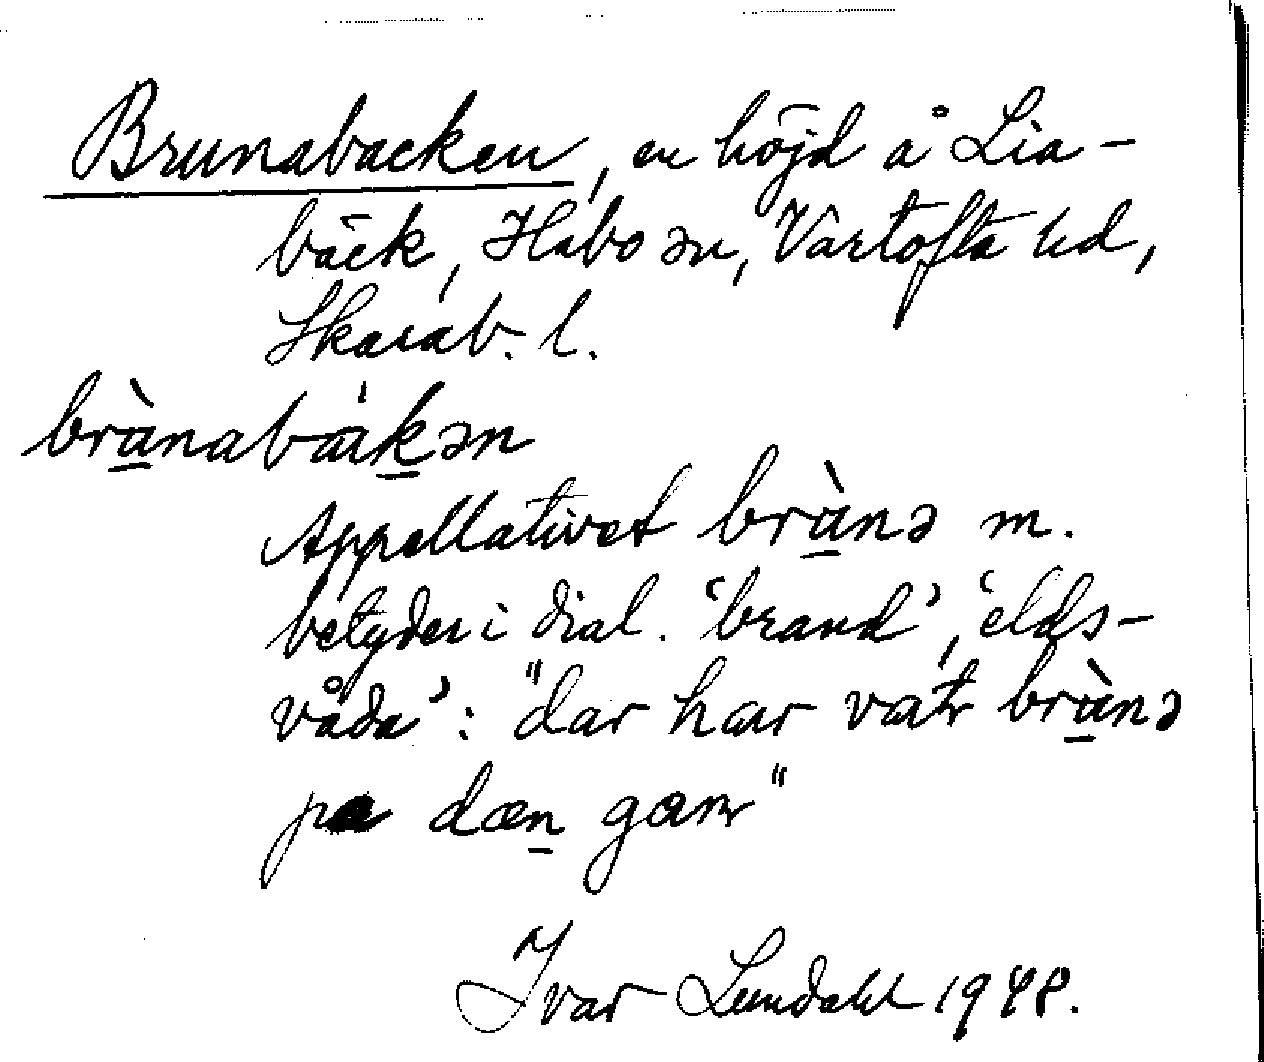 Brunabacken, en höjd å Lia-
bäck, Habo sn, Vartofta hd,
Skarab. l.
brùnabákən
Appellativet brùnə m.
betyder i dial. 'brand', 'elds-
våda': "dar har vatr brùnə
pa dæn gamr"
Ivar Lundahl 1948.